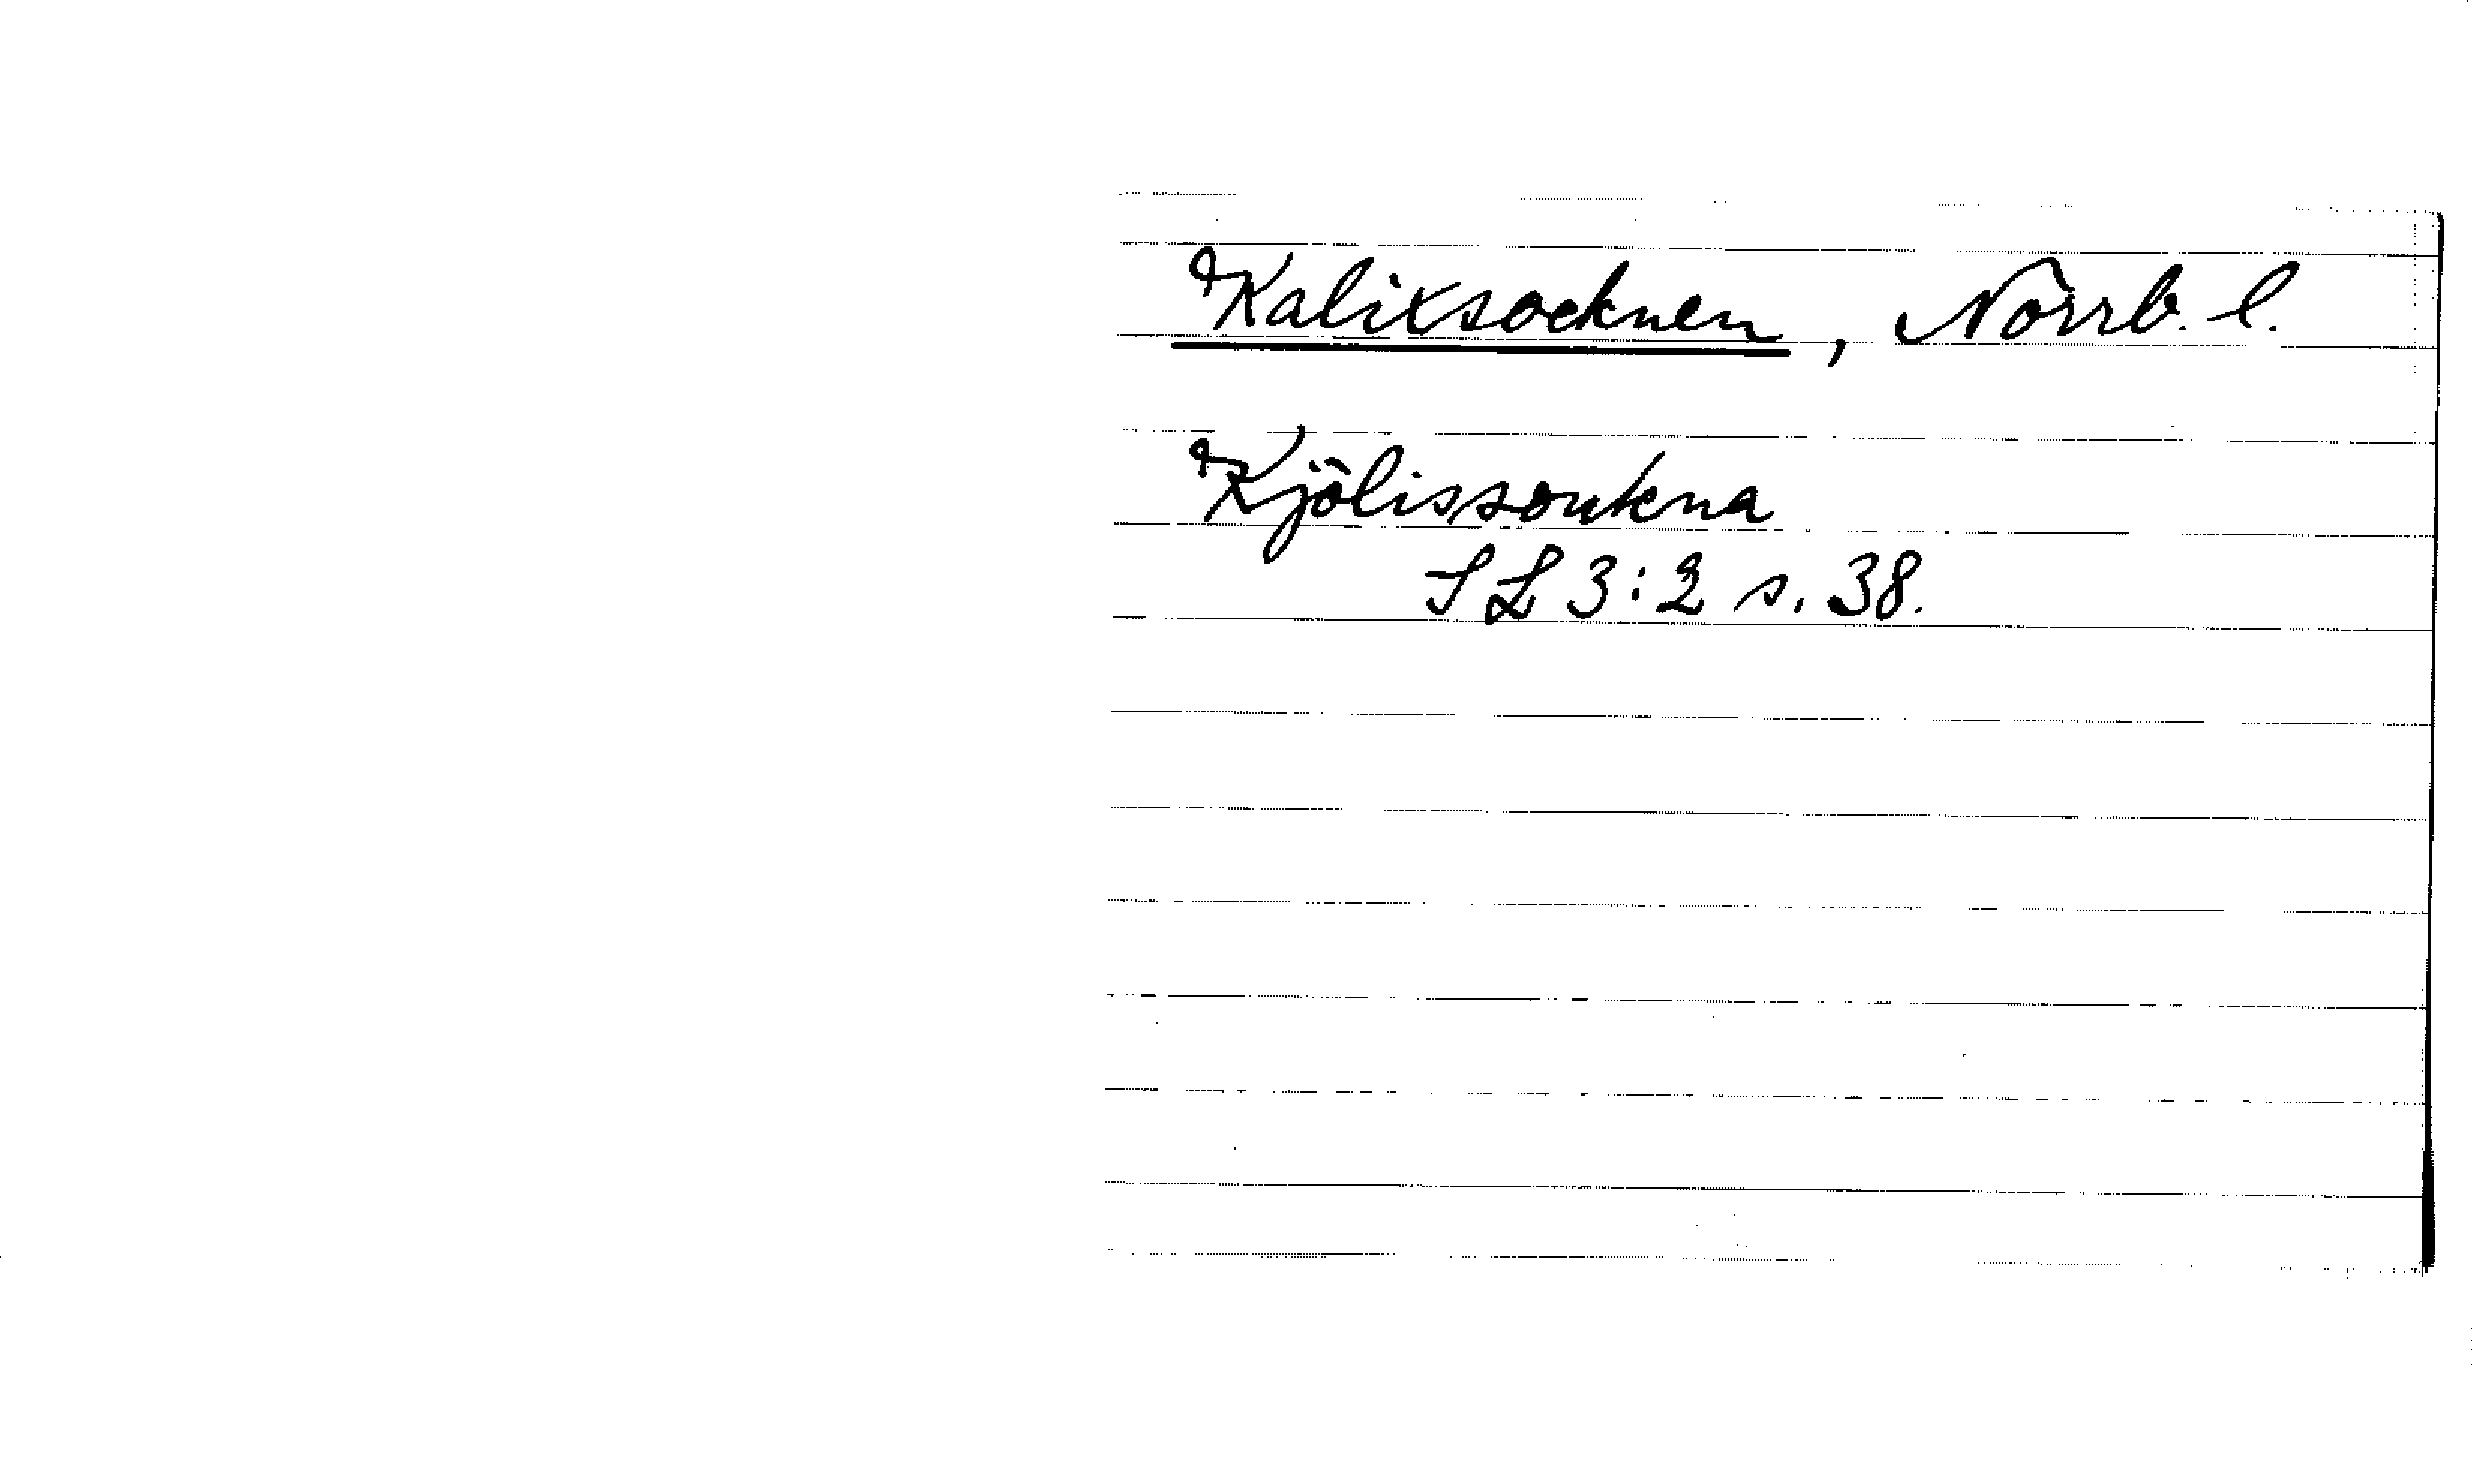 Kalixsocknen, Norrb. l.
Kjölissoukna
SL 3:2 s. 38.